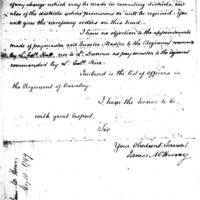 of any change which may be made in recruiting districts, and
also of the districts where provisions &c will be required; you
will give the necessary orders on this head.
I have no objection to the appointments
made of paymaster and Quarter Master to the Regiment commanded
by Lt Coll Hall, nor to Lt Duncan as paymaster to the regiment
commanded by Lt Coll Rice.
Inclosed is the list of Officers in
the Regiment of Cavalry.
I have the honor to be,
with great respect,
Sir
Your Obedient Servant
James McHenry